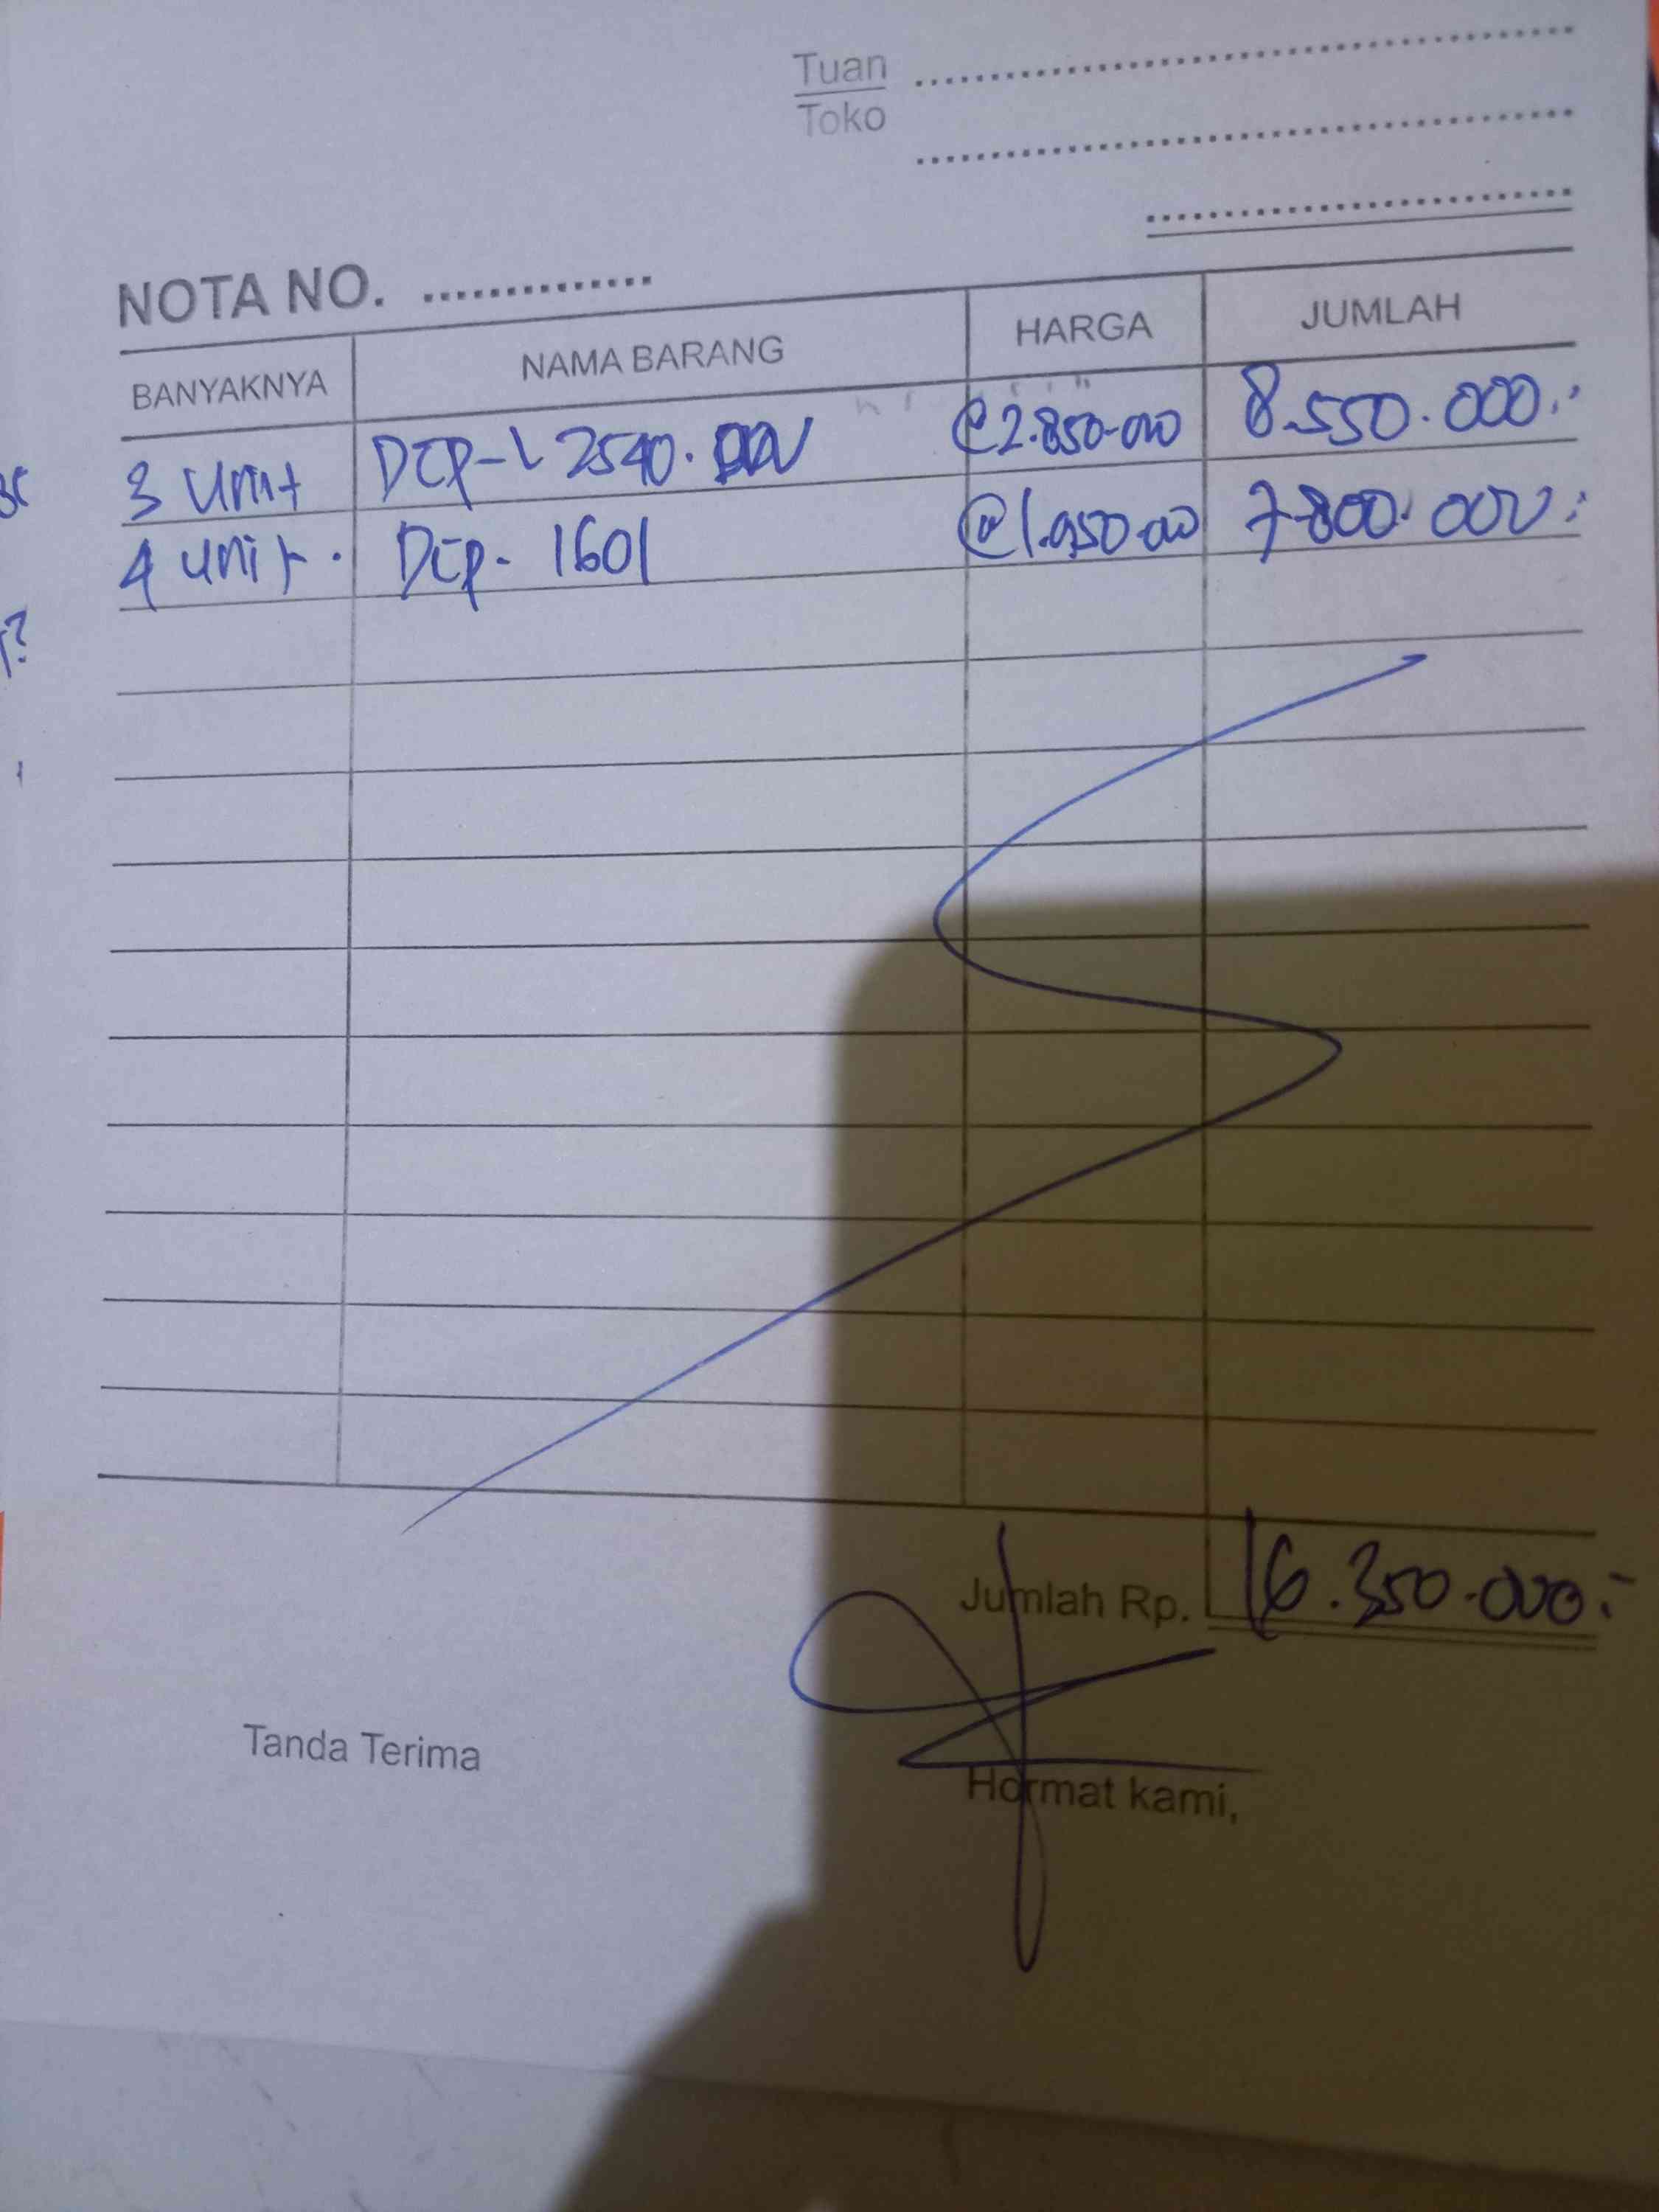 Tuan
Toko
NOTA NO. ..............
BANYAKNYA NAMA BARANG HARGA JUMLAH
3 Unit DCP-L 2540. @2.850.000 8.550.000.-
4 unit. DCP- 1601 @1.950.000 7.800.000.-
Jumlah Rp. 16.350.000.-
Tanda Terima
Hormat kami,